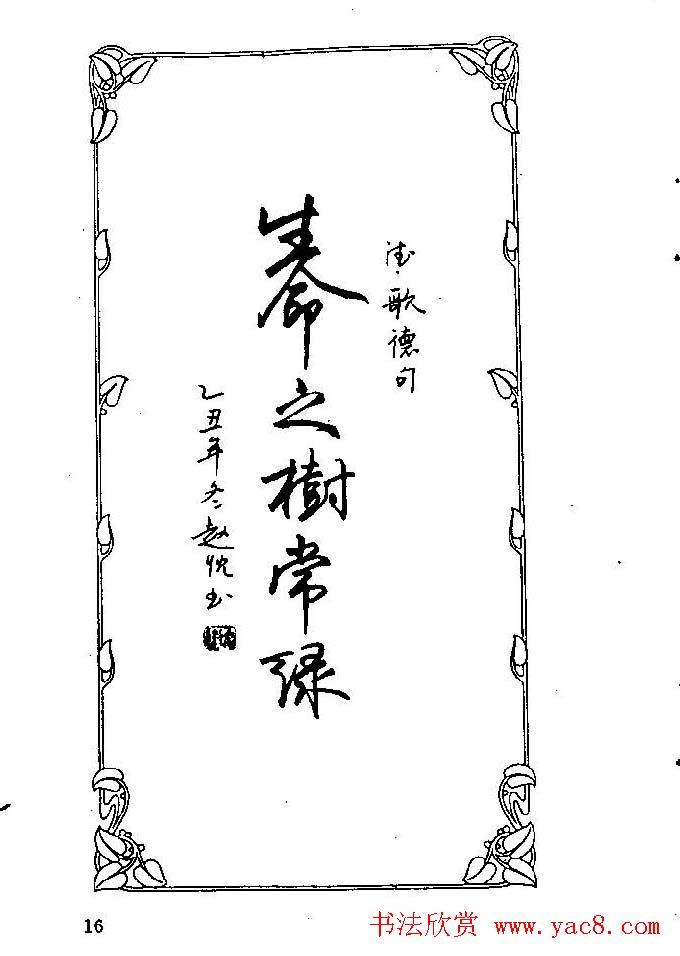 德·歌德句
生命之樹常绿
乙丑年冬赵忱书
16
书法欣赏 www.yac8.com